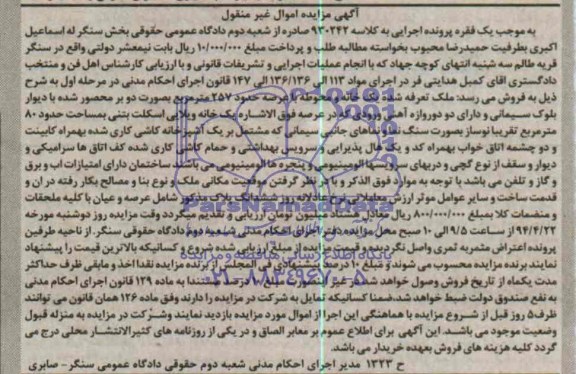 آگهی مزایده اموال غیر منقول
به موجب یک فقره پرونده اجرایی به کلاسه ۹۳۰۲۴۲ صادره از شعبه دوم دادگاه عمومی حقوقی بخش سنگر له اسماعیل
اکبری بطرفیت حمیدرضا محبوب بخواسته مطالبه طلب و پرداخت مبلغ ۱۰/۰۰۰/۰۰۰ ریال بابت نیمعشر دولتی واقع در سنگر
قریه طالم سه شنبه انتهای کوچه جهاد که با انجام عملیات اجرایی و تشریفات قانونی و با ارزیابی کارشناس اهل فن و منتخب
دادگستری اقای کمبل هدایتی فر در اجرای مواد ۱۱۳ الی ۱۳۶/۱۳۶ الی ۱۴۷ قانون اجرای احکام مدنی در مرحله اول به شرح
ذیل به فروش می رسد: ملک تعرفه شده یک خانه ومحوطه با عرصه حدود ۲۵۷ مترمربع بصورت دو بر محصور شده با دیوار
بلوک سیمانی و دارای دو دوروازه آهنی ورودی که در عرصه فوق الاشاره یک خانه ویلایی اسکلت بتنی بمساحت حدود ۸۰
مترمربع تقریبا نوساز بصورت سنگ نما ونماهای جانبی سیمانی که مشتمل بر یک آشپزخانه کاشی کاری شده بهمراه کابینت
و دو چشمه اتاق خواب بهمراه کمد و یک هال پذیرایی و سرویس بهداشتی و حمام کاشی کاری شده کف اتاق ها سرامیکی و
دیوار و سقف از نوع گچی و دربهای سرویسها الومینیومی و پنجره ها الومینیومی می باشد ساختمان دارای امتیازات اب و برق
و گاز و تلفن می باشد با توجه به موارد فوق الذکر و با در نظر گرفتن موقعیت مکانی ملک و نوع بنا و مصالح بکار رفته در ان و
قدمت ساخت و سایر عوامل موثر ارزش معاملاتی و عادلانه روز ششدانگ پلاک مزبور شامل عرصه و عیان با کلیه ملحقات
و منضمات کلا بمبلغ ۸۰۰/۰۰۰/۰۰۰ ریال معادل هشتاد میلیون تومان ارزیابی و تقدیم میگردد وقت مزایده روز دوشنبه مورخه
۹۴/۴/۲۲ از ساعت ۹/۵ الی ۱۰ صبح محل مزایده دفتر اجرای احکام مدنی شعبه دوم دادگاه حقوقی سنگر. از ناحیه طرفین
پرونده اعتراض مثمربه ثمری واصل نگردیده و قیمت مزایده از مبلغ ارزیابی شده شروع و کسانیکه بالاترین قیمت را پیشنهاد
نمایند برنده مزایده محسوب می شوند و مبلغ ۱۰ درصد پیشنهادی فی المجلس از برنده مزایده نقدا اخذ و مابقی ظرف حداکثر
مدت یکماه از تاریخ فروش وصول خواهد شد در غیر اینصورت مبلغ ۱۰ درصد مستندا به ماده ۱۲۹ قانون اجرای احکام مدنی
به نفع صندوق دولت ضبط خواهد شد.ضمنا کسانیکه تمایل به شرکت در مزایده را دارند وفق ماده ۱۲۶ همان قانون می توانند
ظرف ۵ روز قبل از شروع مزایده با هماهنگی این اجرا از اموال مورد مزایده بازدید نمایند وشرکت در مزایده به منزله قبول
وضعیت موجود می باشد. این آگهی برای اطلاع عموم بر معابر الصاق و در یکی از روزنامه های کثیرالانتشار محلی درج می
گردد کلیه هزینه های فروش بعهده خریدار می باشد.
ح ۱۳۲۳ مدیر اجرای احکام مدنی شعبه دوم حقوقی دادگاه عمومی سنگر- صابری